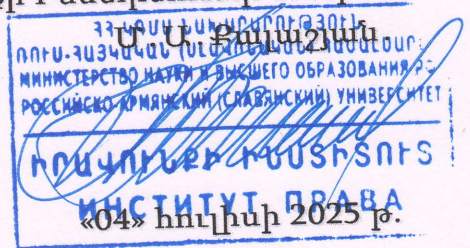 Մ. Ա. Քալաշյան
ՌՈՒՍ-ՀԱՅԿԱԿԱՆ
МИНИСТЕРСТВО НАУКИ И ВЫСШЕГО ОБРАЗОВАНИЯ
РОССИЙСКО АРМЯНСКИЙ (СЛАВЯНСКИЙ) УНИВЕРСИТЕТ
ԻՐԱՎՈՒՆՔԻ ԻՆՍՏԻՏՈՒՏ
ИНСТИТУТ ПРАВА
«04» հուլիսի 2025 թ.